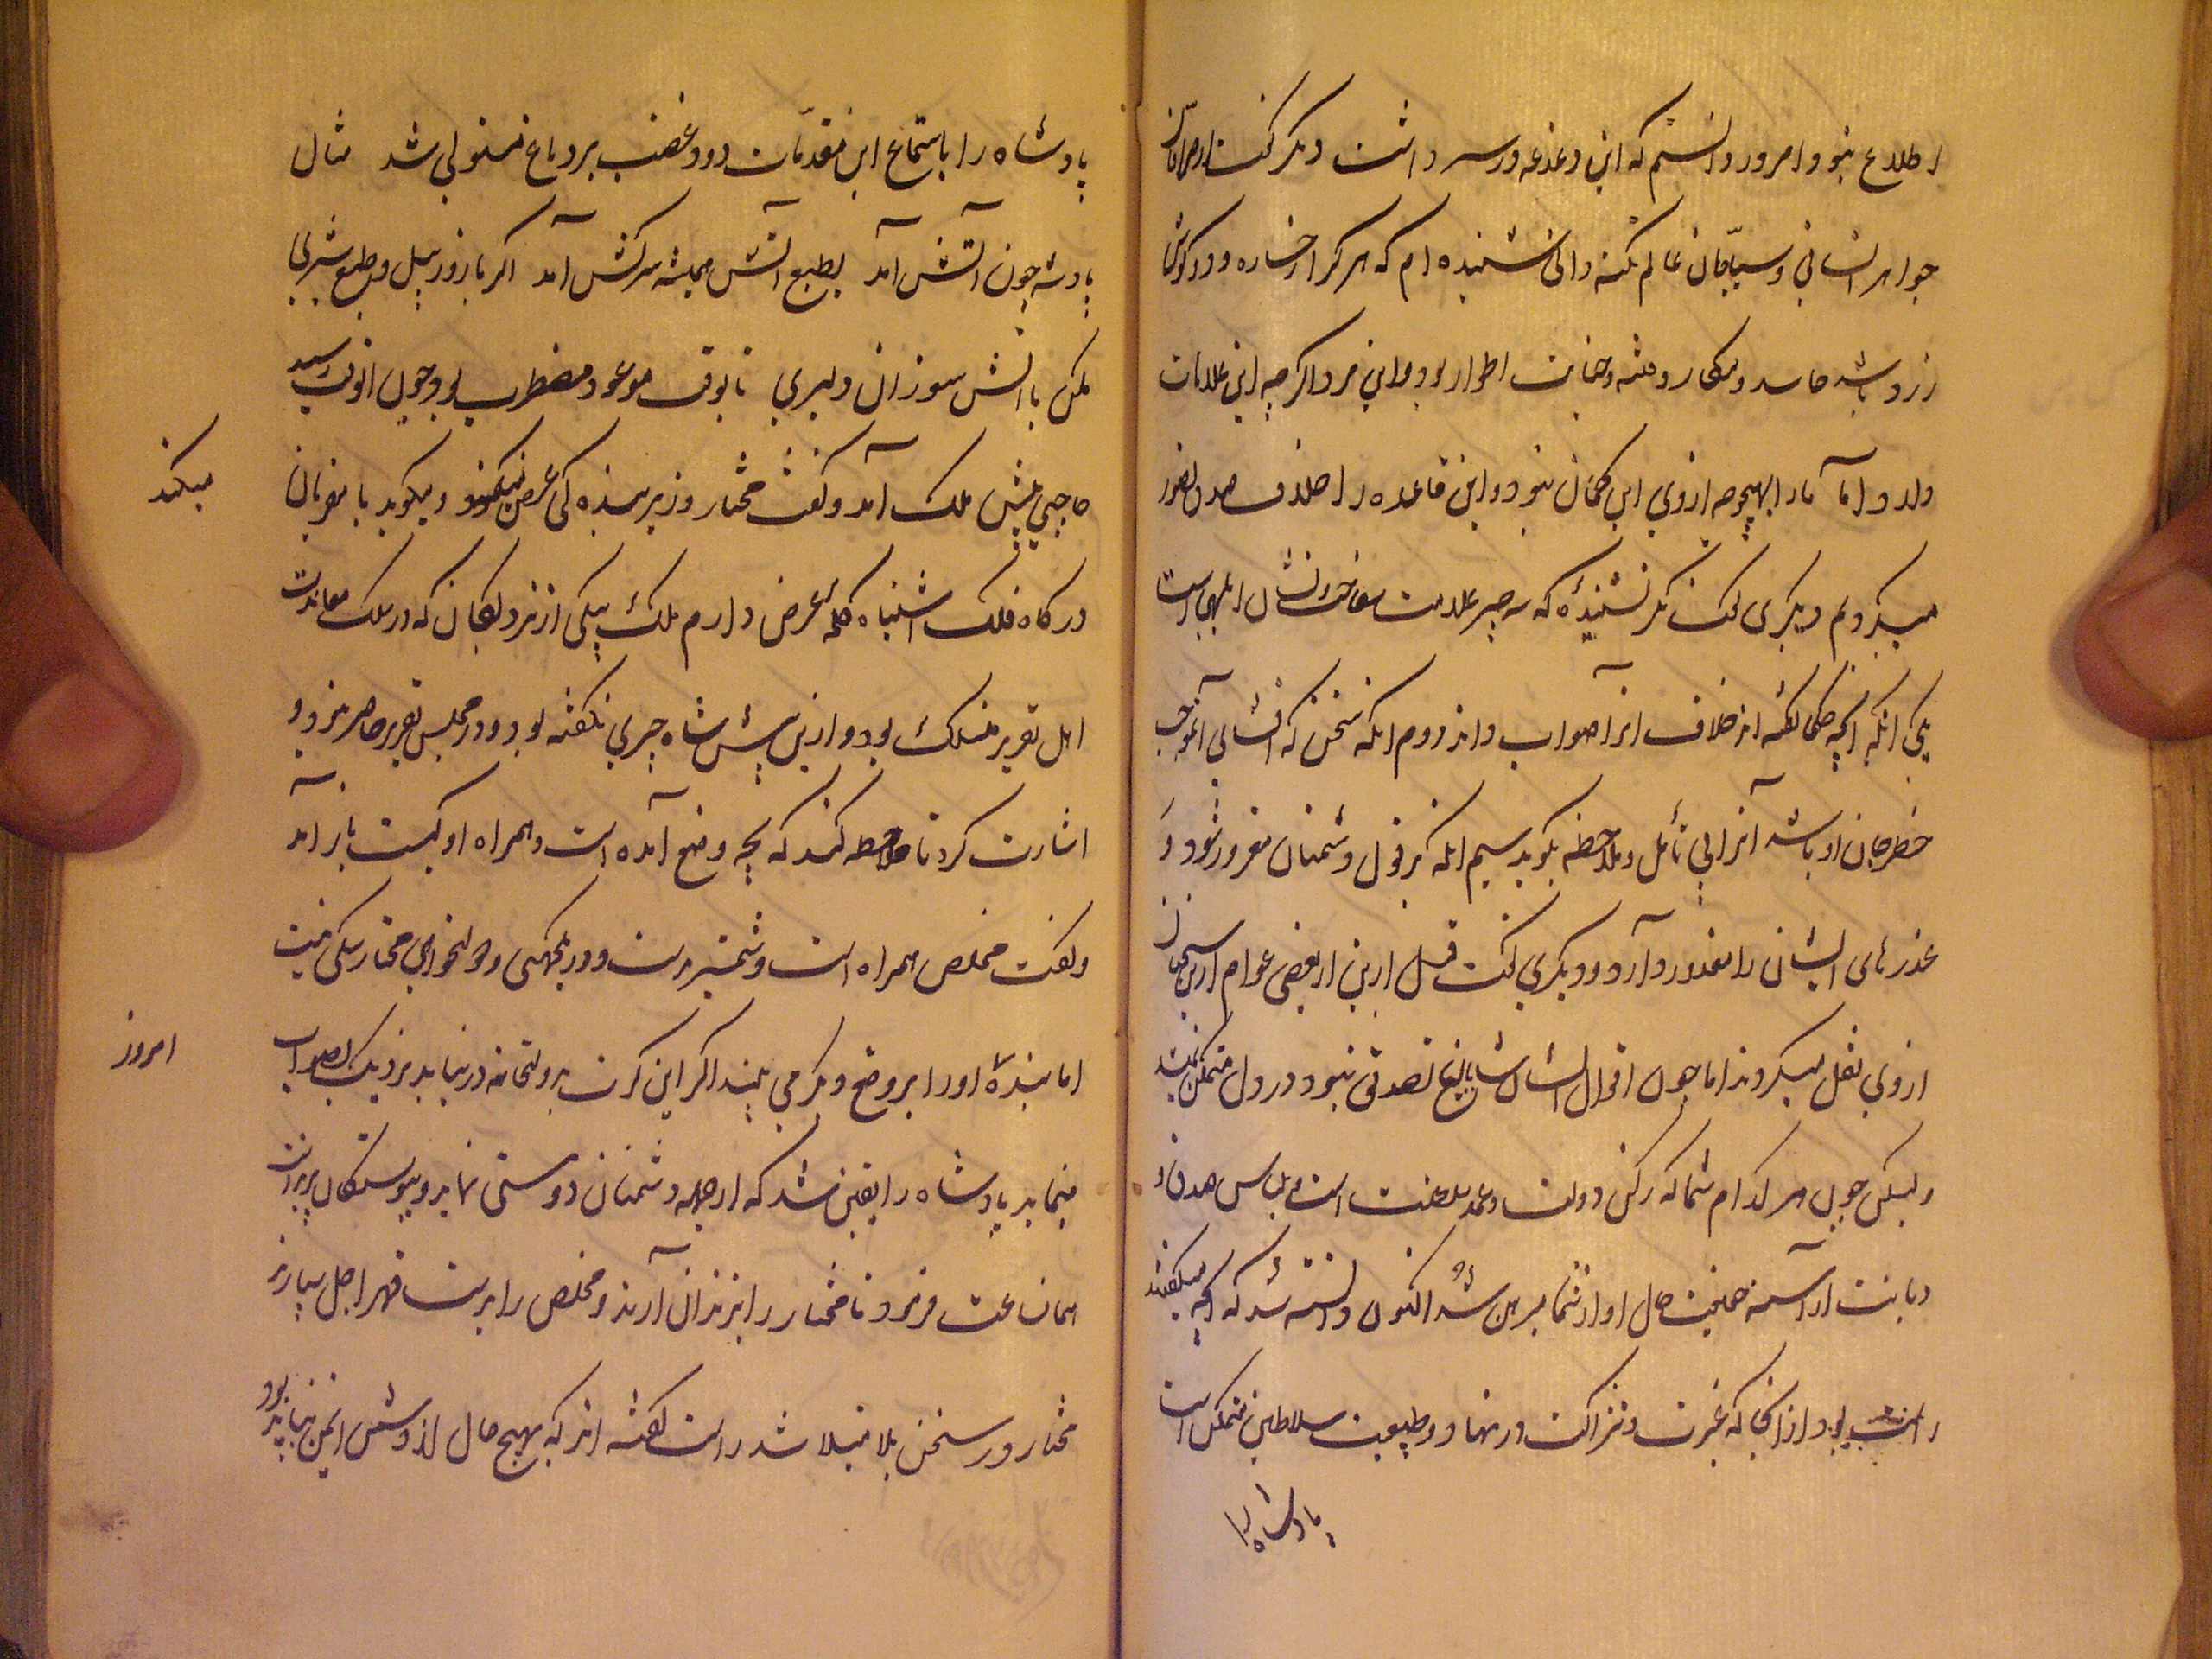 اطلاع نبود امروز دانستم که این دغدغه در سر داشت دیگر گفت از صرافان
جواهر انسانی و سیاحان عالم نکته دانی شنیده ام که هر کرا رخساره و در گوش
زرد باشد حاسد و مکار و فتنه و خیانت اطوار بود و این مرد اگر چه این علامات
دارد اما ما را بهیچوجه از وی این گمان نبود و این قاعده را خلاف صدق تصور
میکردم دیگری گفت مگر نشنیدهٔ که سه چیز علامت و نشان ابلهی است
یکی آنکه آنچه حکما گفته اند خلاف آنرا صواب داند دوم آنکه سخن که افشای آن موجب
خطر جان او باشد آنرا بی تأمل و ملاحظه بگوید سیم آنکه بر قول دشمنان مغرور شود و
عذرهای ایشان را معذور دارد و دیگری گفت قبل ازین از بعضی عوام ازین سخنان
از وی نقل میکردند اما چون اقوال ایشان شایان تصدیق نبود در دل متمکن نمیشد
ولیکن چون هر کدام شما که رکن دولت و عمده سلطنت است بلباس صدق و
دیانت آراسته حقیقت حال او از شما مبرهن شد اکنون دانسته شد که آنچه میگفتند
راست بود از آنجا که غیرت و نزاکت در نهاد و طبیعت سلاطین متمکن است
پادشاه را
پادشاه را باستماع این مقدمات دود غضب بر دماغ مستولی شد مثال
پادشه چون آتش آمد بطبع آتش همیشه سرکش آمد اگر با زور پیل و طبع شیری
مکن با آتش سوزان دلیری تا بوقت موعود مضطرب بود چون انوقت رسید
حاجبی پیش ملک آمد و گفت مختار وزیر بندهٔ کی عرض میکند و میگوید با مقربان
میکند
درگاه فلک اشتباه کلمهٔ عرض دارم ملک بیکی از نزدیکان که در سلک معاندت
اهل تقریر منسلک بود و ازین پیش شاه چیزی نگفته بود و در مجلس تقریر حاضر نبود و
اشارت کرد تا ملاحظه کند که بچه وضع آمده است و همراه او کیست باز آمد
و گفت مخلص همراه است و شمشیر بدست و در یکجهتی و دولتخواهی مختار شکی نیست
اما بنده او را بر وضع دیگر می بیند اگر این کرت بدولتخانه در نیاید نزدیک بصواب
امروز
مینماید پادشاه را یقین شد که از جمله دشمنان دوستی نما و پیوستگان است
همان ساعت فرمود تا مختار را بزندان آرند و مخلص را بدست قهر اجل سپارند
مختار در سخن بلا مبتلا شد راست گفته اند که بهیچ حال از دشمن ایمن نباید بود